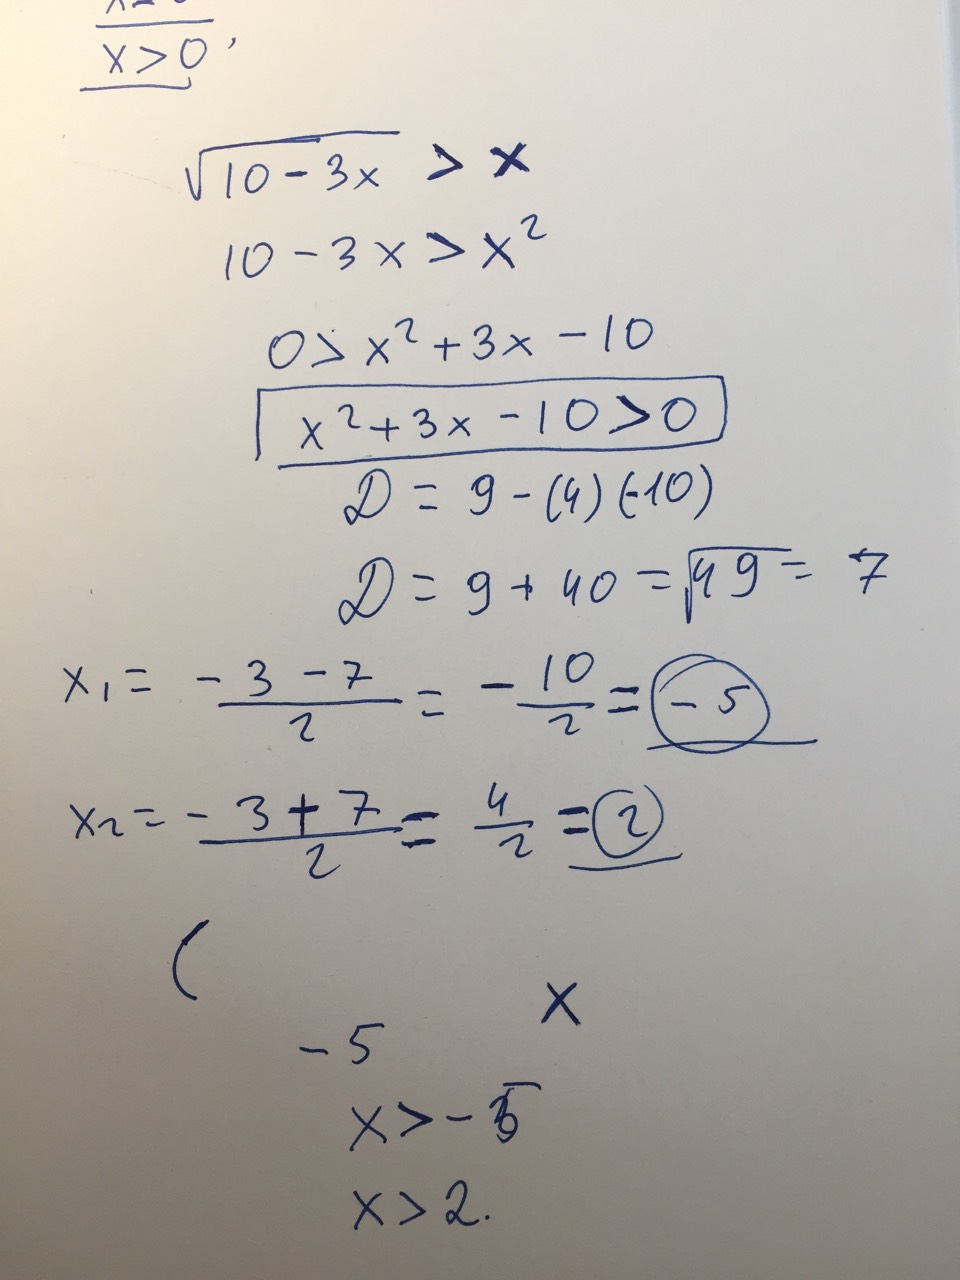 x > 0,
√(10 - 3x) > x
10 - 3x > x²
0 > x² + 3x - 10
x² + 3x - 10 > 0
D = 9 - (4)(-10)
D = 9 + 40 = √49 = 7
x₁ = (-3 - 7)/2 = -10/2 = -5
x₂ = (-3 + 7)/2 = 4/2 = 2
(
x
-5
x > -5
x > 2.